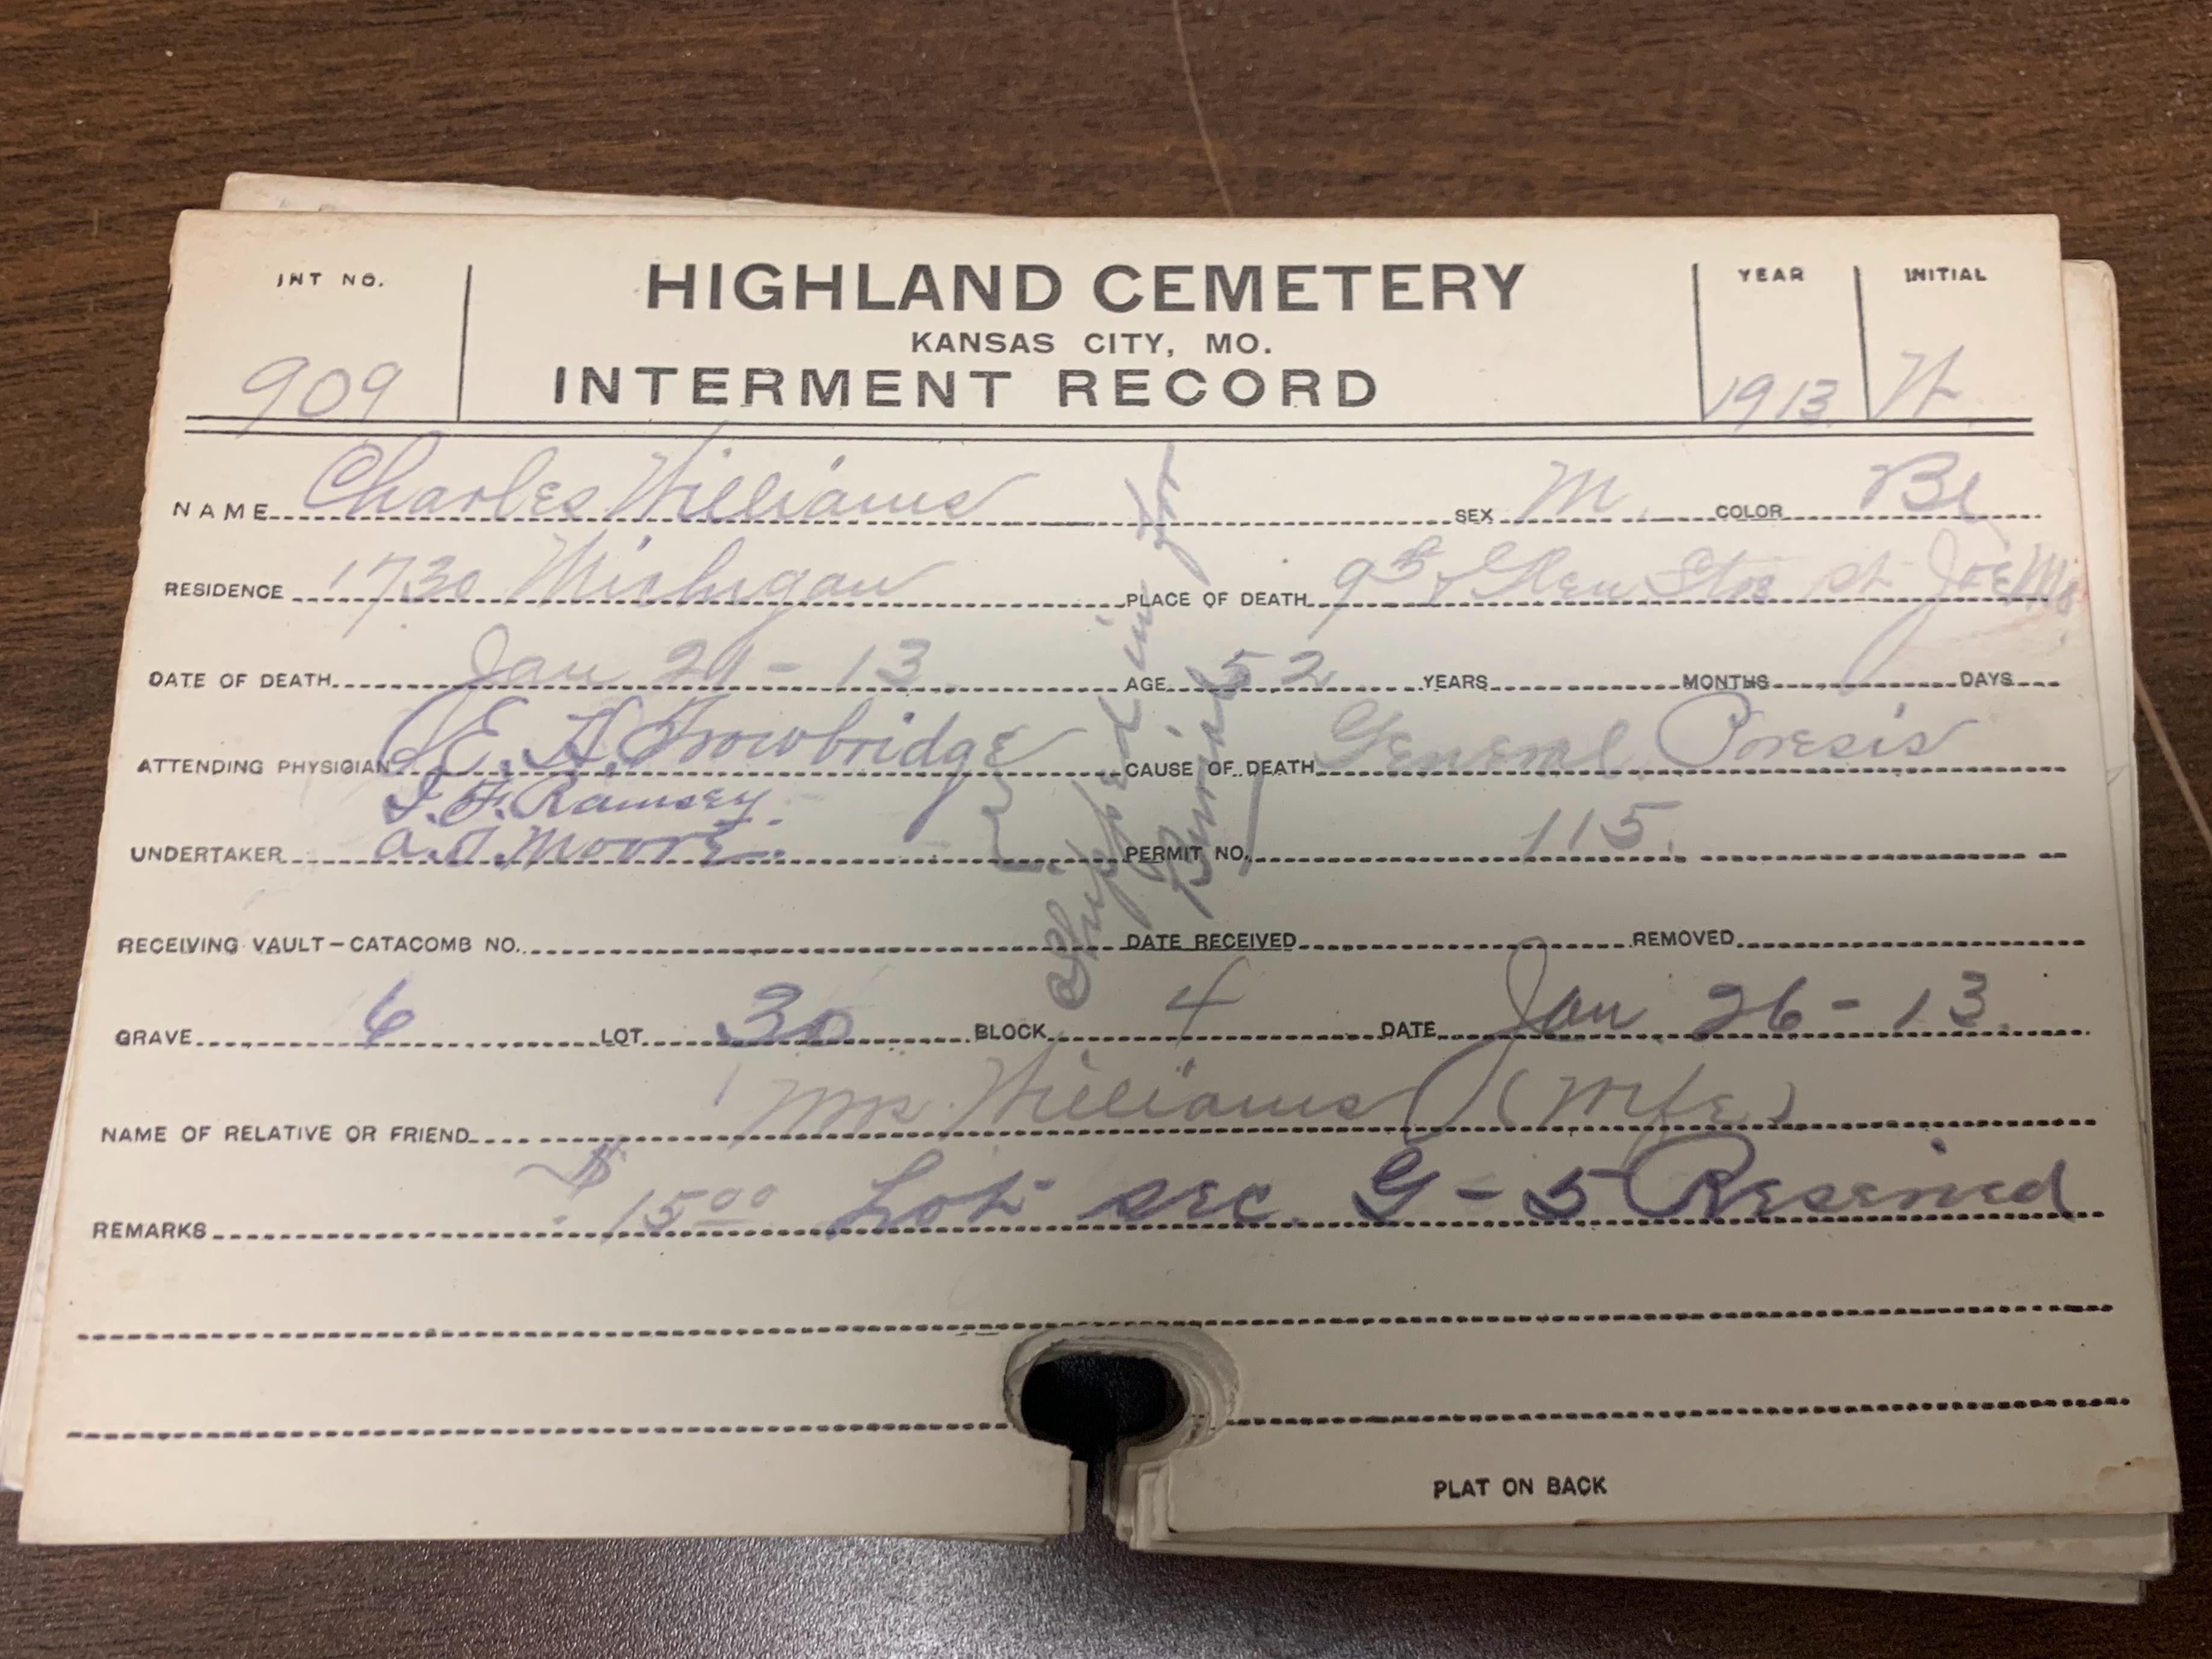 INT NO.
HIGHLAND CEMETERY
YEAR
INITIAL
KANSAS CITY, MO.
909
INTERMENT RECORD
1913
W
NAME Charles Williams SEX M. COLOR Bl
RESIDENCE 1730 Michigan PLACE OF DEATH 9th & St Joe Mo
DATE OF DEATH Jan - 13 AGE 52 YEARS MONTHS DAYS
ATTENDING PHYSICIAN E. H. Trowbridge CAUSE OF DEATH General Poresis
F. Ramsey
UNDERTAKER A. T. Moore PERMIT NO. 115.
Shipped in for
Burial
RECEIVING VAULT-CATACOMB NO. DATE RECEIVED REMOVED
GRAVE 6 LOT 30 BLOCK 4 DATE Jan 26-13.
NAME OF RELATIVE OR FRIEND Mrs. Williams (Wife)
REMARKS $15.00 Lot sec. G-5 Reserved
PLAT ON BACK